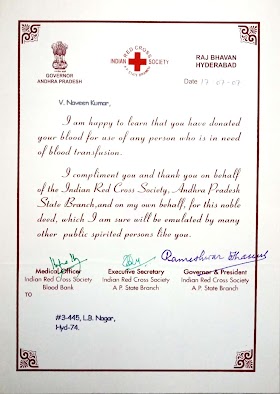 RED CROSS
INDIAN SOCIETY
A.P. STATE BRANCH
GOVERNOR
ANDHRA PRADESH
RAJ BHAVAN
HYDERABAD
Date
V. Naveen Kumar,
I am happy to learn that you have donated
your blood for use of any person who is in need
of blood transfusion.
I compliment you and thank you on behalf
of the Indian Red Cross Society, Andhra Pradesh
State Branch, and on my own behalf, for this noble
deed, which I am sure will be emulated by many
other public spirited persons like you.
Rameshwar Thakur
Medical Officer
Indian Red Cross Society
Blood Bank
Executive Secretary
Indian Red Cross Society
A.P. State Branch
Governor & President
Indian Red Cross Society
A.P. State Branch
TO
#3-445, L.B. Nagar,
Hyd-74.